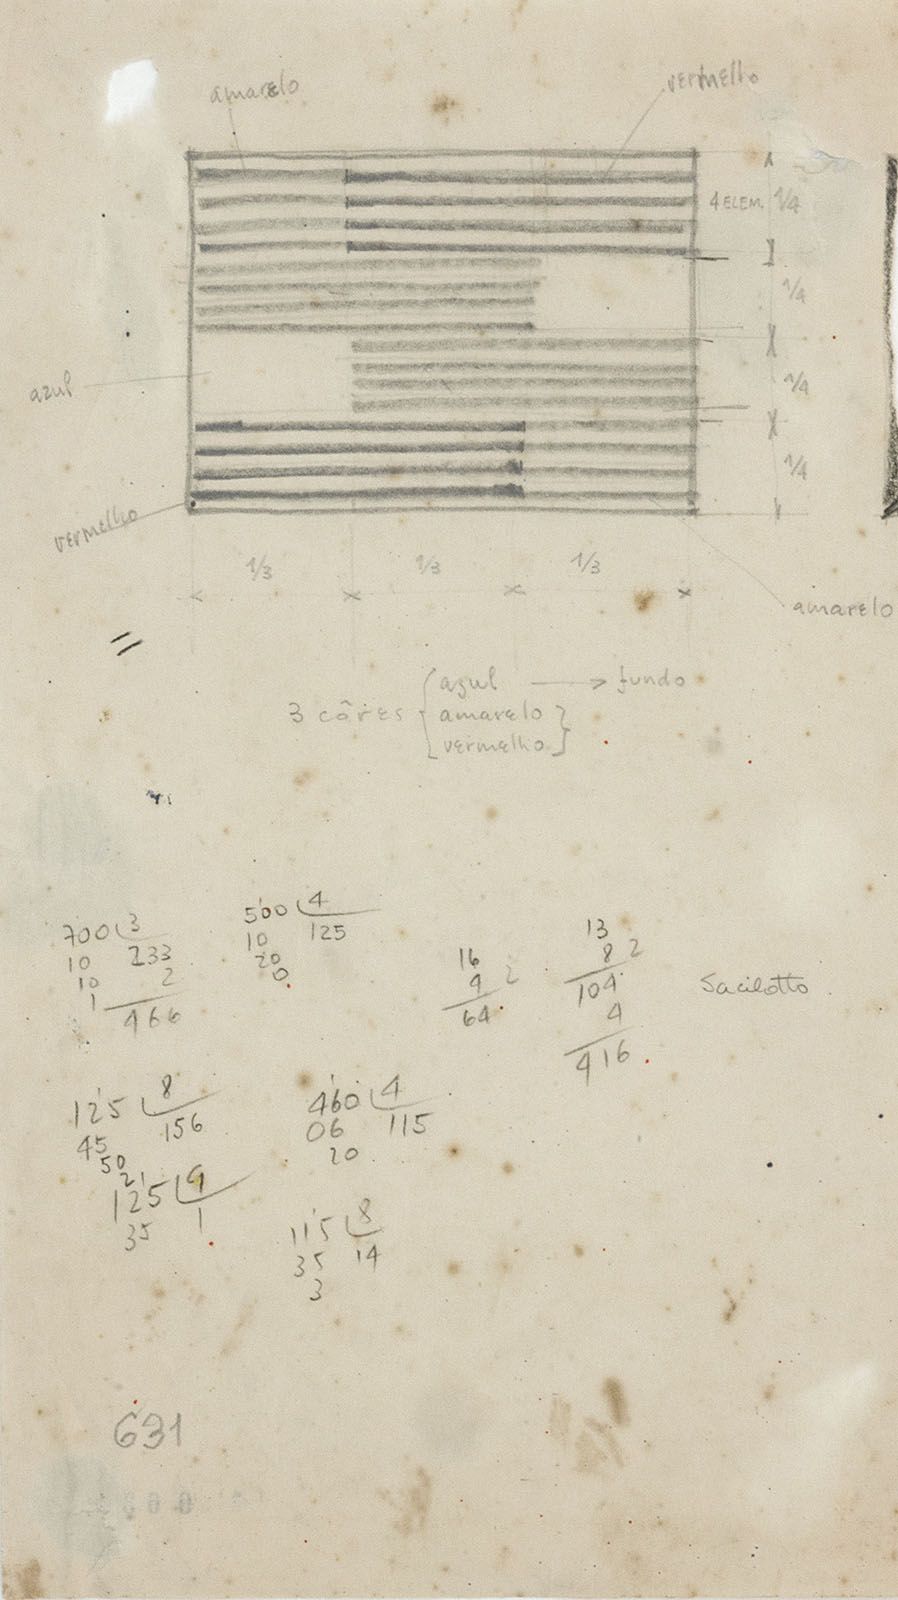 amarelo
vermelho
4 ELEM. 1/4
1/4
azul
1/4
1/4
vermelho
1/3 1/3 1/3
amarelo
azul → fundo
3 côres { amarelo }
vermelho
700 3
10 233
10 2
1 466
500 4
10 125
20
0
16
4 2
64
13
8 2
104
4
416
Sacilotto
125 8
45 156
50
2
460 4
06 115
20
125 9
35 1
115 8
35 14
3
631